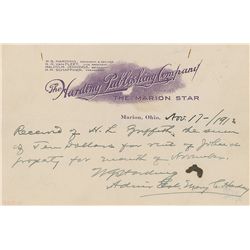 W. G. HARDING, PRESIDENT & EDITOR
The Harding Publishing Company
THE MARION STAR
Marion, Ohio, Nov. 17 - 1912
Received of H. L. Griffith, the sum
of Ten Dollars for rent of
property for month of November.
W G Harding
Admr. Est. Mary C. Harding